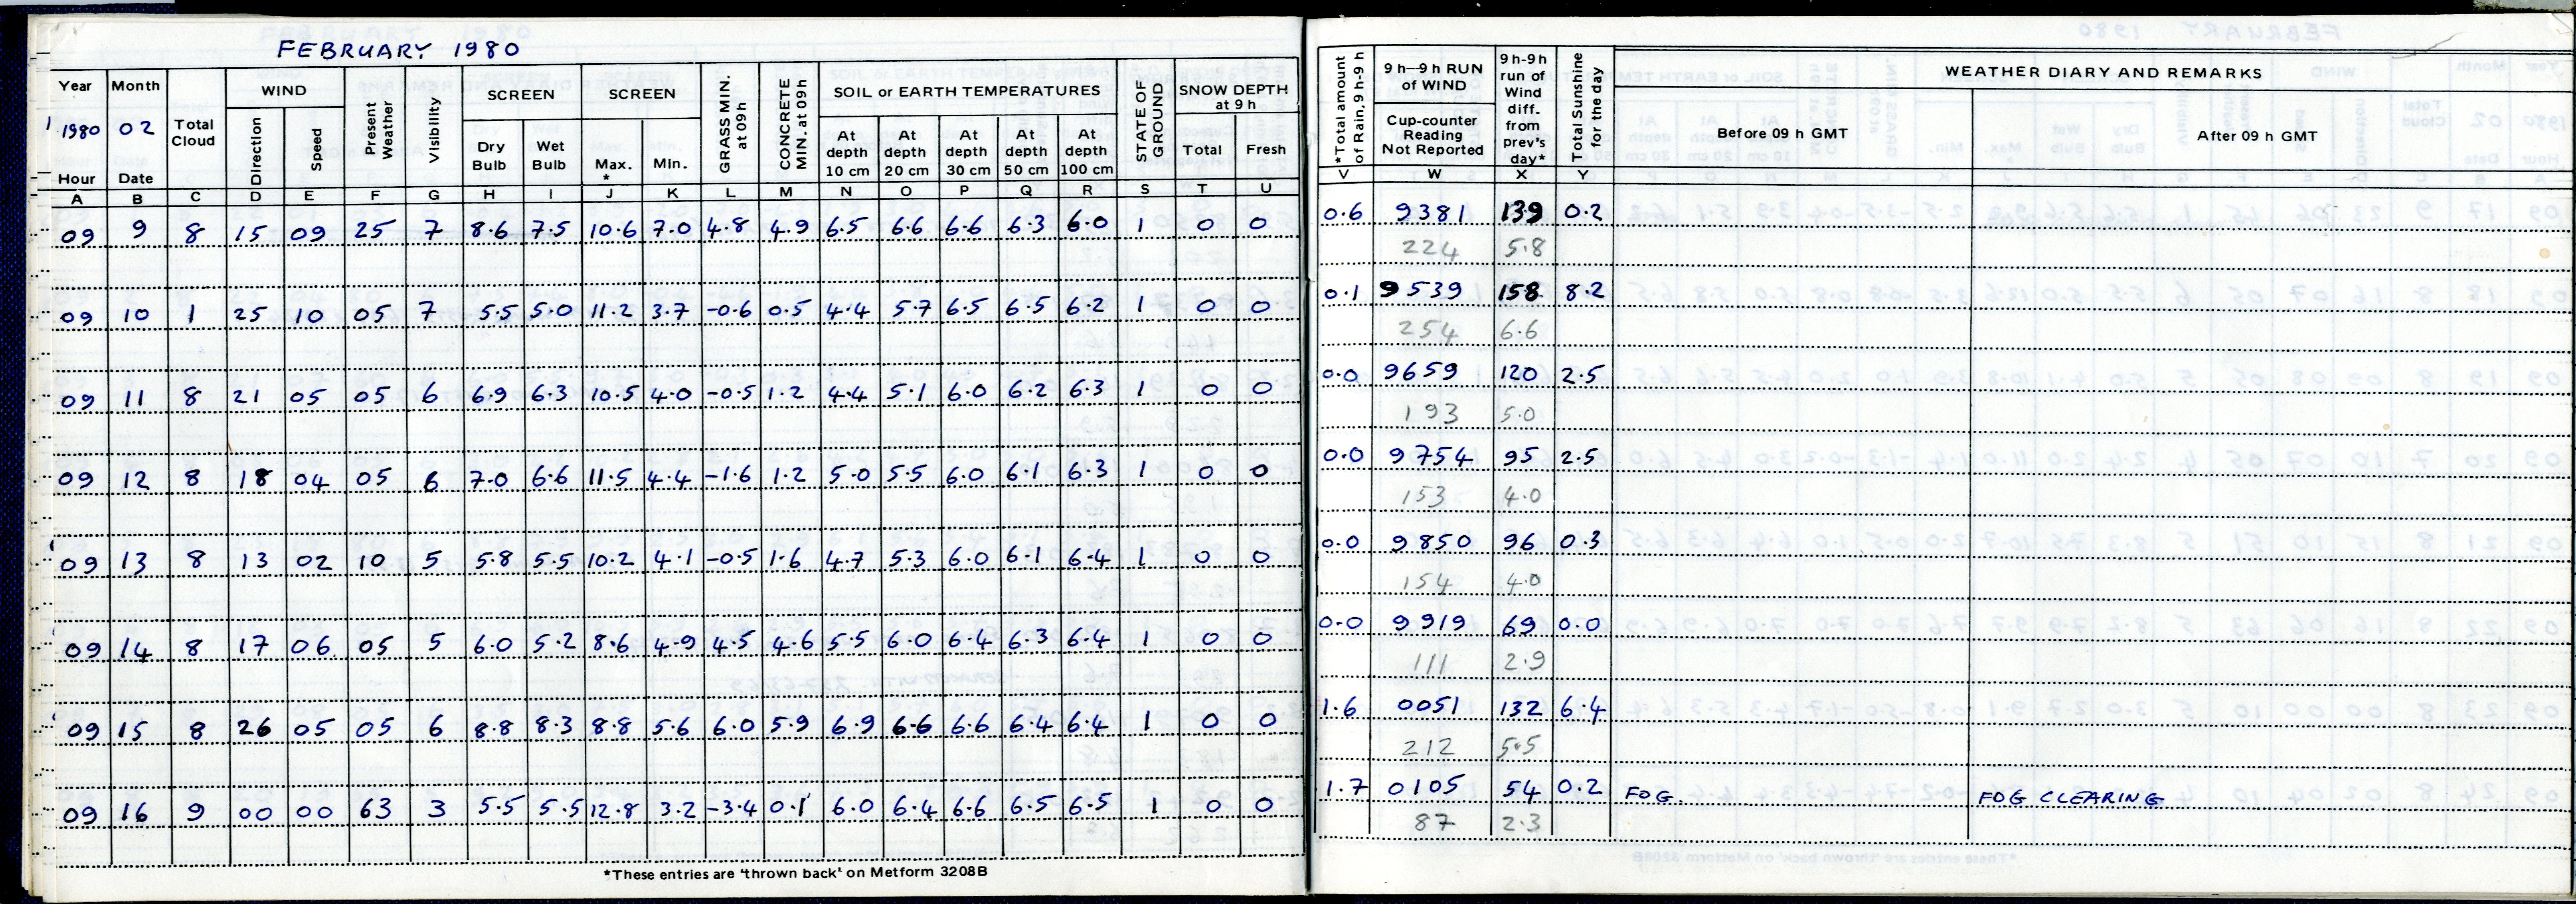 FEBRUARY 1980
Year Month Total Cloud WIND Present Weather Visibility SCREEN SCREEN GRASS MIN. at 09 h CONCRETE MIN. at 09 h SOIL or EARTH TEMPERATURES STATE OF GROUND SNOW DEPTH at 9 h *Total amount of Rain, 9 h-9 h 9 h—9 h RUN of WIND 9 h-9h run of Wind diff. from prev's day* Total Sunshine for the day WEATHER DIARY AND REMARKS
1980 02 Direction Speed Dry Bulb Wet Bulb Max. * Min. At depth 10 cm At depth 20 cm At depth 30 cm At depth 50 cm At depth 100 cm Total Fresh Cup-counter Reading Not Reported Before 09 h GMT After 09 h GMT
Hour Date
A B C D E F G H I J K L M N O P Q R S T U V W X Y
09 9 8 15 09 25 7 8.6 7.5 10.6 7.0 4.8 4.9 6.5 6.6 6.6 6.3 6.0 1 0 0 0.6 9381 139 0.2
224 5.8
09 10 1 25 10 05 7 5.5 5.0 11.2 3.7 -0.6 0.5 4.4 5.7 6.5 6.5 6.2 1 0 0 0.1 9539 158 8.2
254 6.6
09 11 8 21 05 05 6 6.9 6.3 10.5 4.0 -0.5 1.2 4.4 5.1 6.0 6.2 6.3 1 0 0 0.0 9659 120 2.5
193 5.0
09 12 8 18 04 05 6 7.0 6.6 11.5 4.4 -1.6 1.2 5.0 5.5 6.0 6.1 6.3 1 0 0 0.0 9754 95 2.5
153 4.0
09 13 8 13 02 10 5 5.8 5.5 10.2 4.1 -0.5 1.6 4.7 5.3 6.0 6.1 6.4 1 0 0 0.0 9850 96 0.3
154 4.0
09 14 8 17 06 05 5 6.0 5.2 8.6 4.9 4.5 4.6 5.5 6.0 6.4 6.3 6.4 1 0 0 0.0 9919 69 0.0
111 2.9
09 15 8 26 05 05 6 8.8 8.3 8.8 5.6 6.0 5.9 6.9 6.6 6.6 6.4 6.4 1 0 0 1.6 0051 132 6.4
212 5.5
09 16 9 00 00 63 3 5.5 5.5 12.8 3.2 -3.4 0.1 6.0 6.4 6.6 6.5 6.5 1 0 0 1.7 0105 54 0.2 FOG. FOG CLEARING
87 2.3
*These entries are 'thrown back' on Metform 3208B